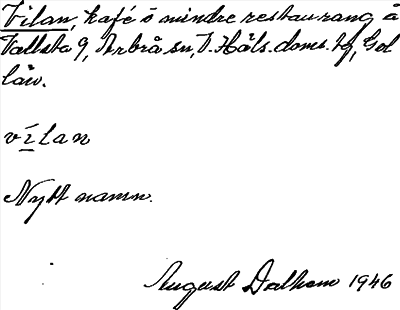 Vilan, kafé o mindre restaurang å
Vallsta 9, Arbrå sn, V. Häls. doms. tg, Gol
län.
vilan
Nytt namn.
August Dalhem 1946